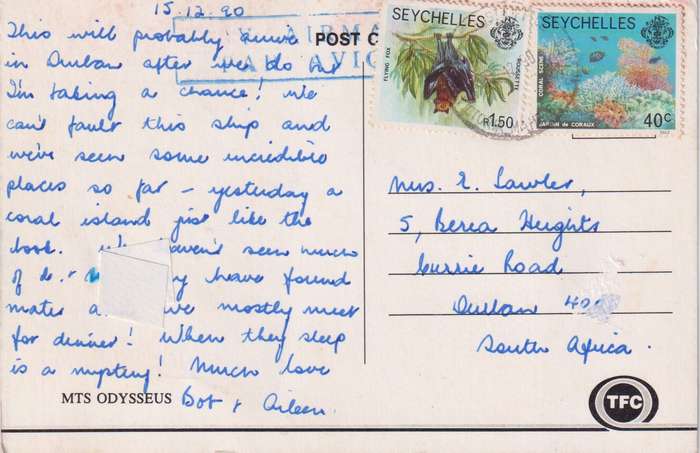 15.12.90
This will probably arrive
in Durban after we do but
I'm taking a chance! We
can't fault this ship and
we've seen some incredible
places so far – yesterday a
coral island just like the
book. haven't seen much
of have found
mates we mostly meet
for dinner! When they sleep
is a mystery! Much love
Bob & Aileen.
MTS ODYSSEUS
POST C
AIRMA
PAR AVIO
SEYCHELLES
FLYING FOX
ROUSSETTE
R1.50
SEYCHELLES
CORAL SCENE
JARDIN de CORAUX
40c
Mrs. E. Lawler,
5, Berea Heights
Currie Road
Durban 400
South Africa.
TFC